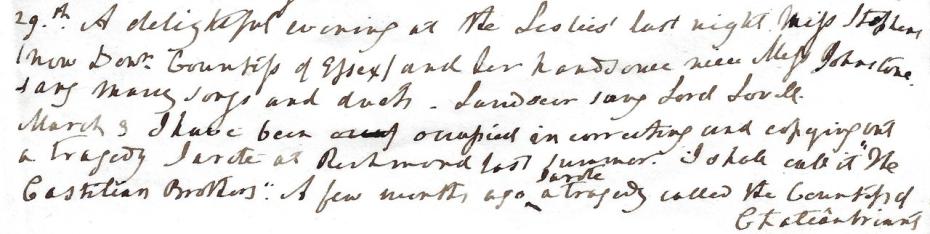 29.th A delightful evening at the Leslies' last night Miss Stephens
(now Dowr. Countess of Essex) and her handsome niece Miss Johnstone
sang many songs and duets - Landseer sang Lord Lovell.
March 3 I have been occupied in correcting and copying out
a tragedy I wrote at Richmond last summer. I shall call it "The
Castilian Brothers". A few months ago I wrote a tragedy called the Countess of
Chateaubriant